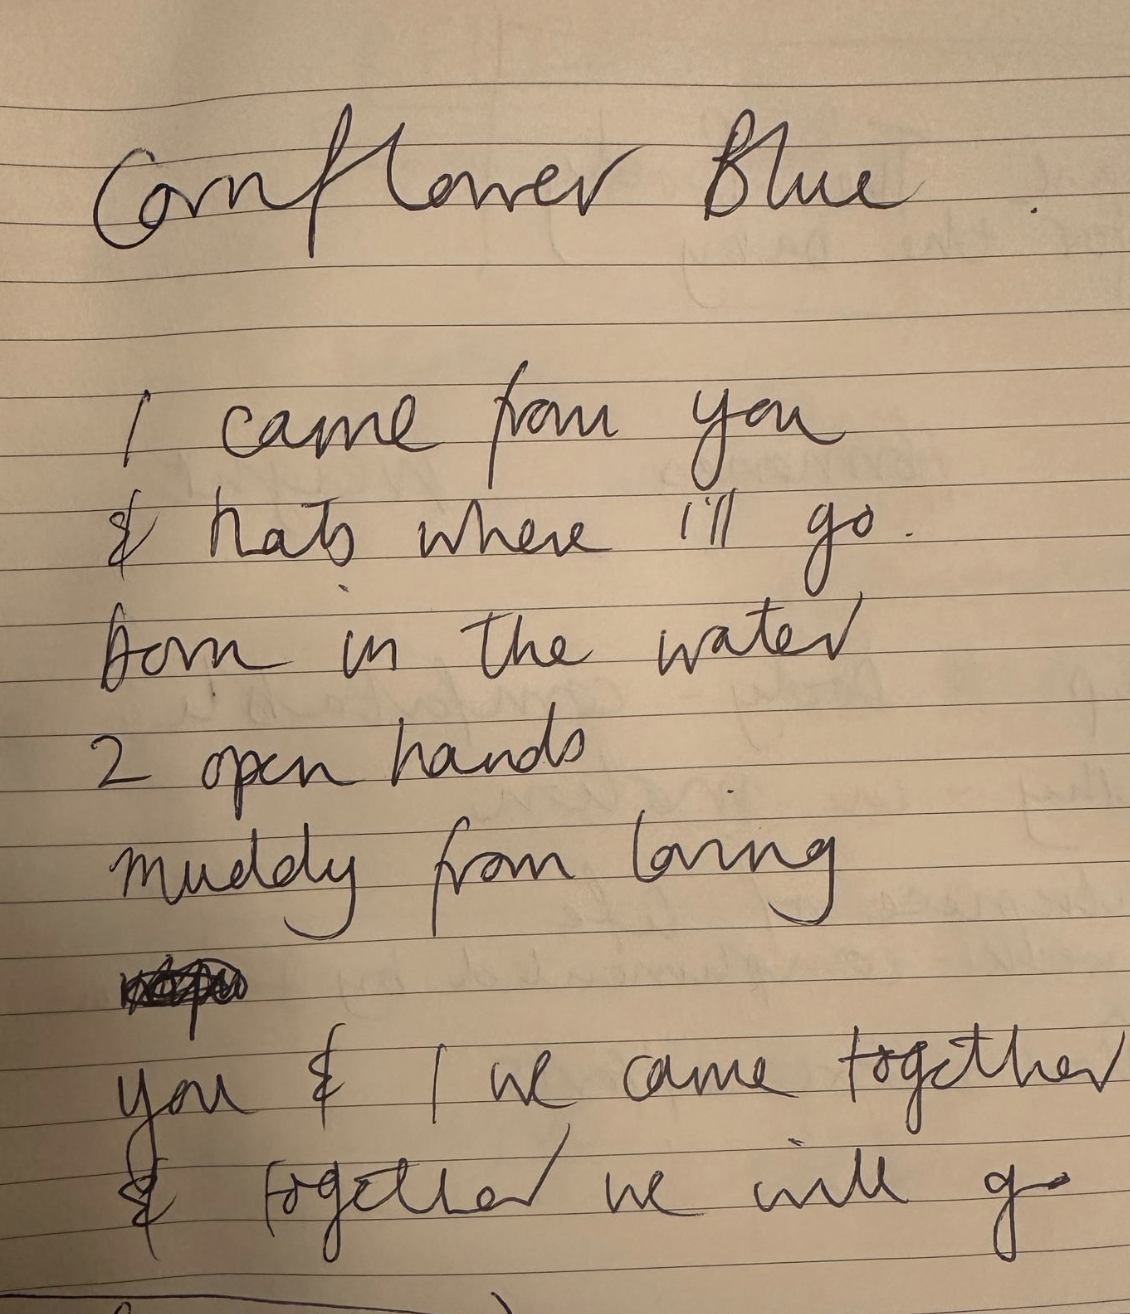 Cornflower Blue
I came from you
& thats where i'll go.
born in the water
2 open hands
muddy from loving
you & I we came together
& together we will go